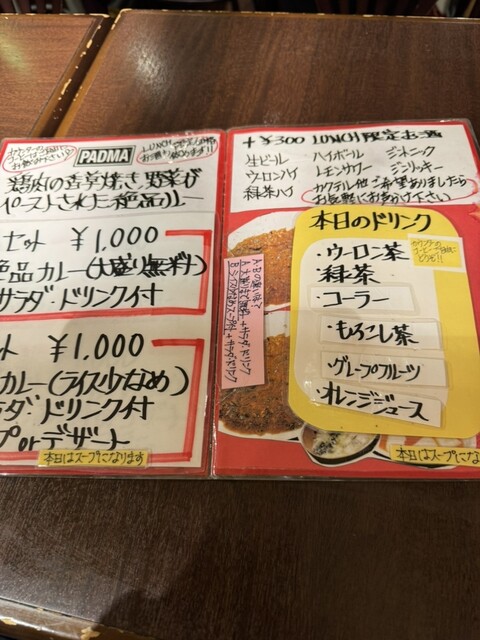 PADMA
LUNCH
鶏肉の香草焼き野菜が
ペーストされた絶品カレー
セット ¥1,000
絶品カレー(大盛り無料)
サラダ・ドリンク付
ット ¥1,000
カレー(ライス少なめ)
ラダ・ドリンク付
プorデザート
本日はスープになります
+¥300 LUNCH限定お酒
生ビール ハイボール ジントニック
ウーロンハイ レモンサワー ジンリッキー
緑茶ハイ カクテル他ご希望ありましたら
お気軽にお声がけ下さい
本日のドリンク
・ウーロン茶
・緑茶
・コーラー
・もろこし茶
・グレープフルーツ
・オレンジジュース
A・Bの違いは
本日はスープになりま